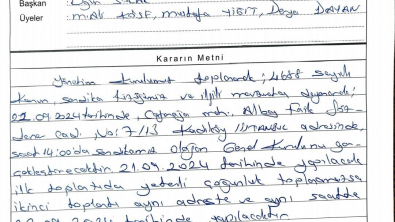 Başkan
Üyeler : Mustafa YİĞİT, Derya
Kararın Metni
Yönetim kurulumuz toplanarak; 4688 sayılı
Kanun, sendika tüzüğümüz ve ilgili mevzuata dayanarak;
2024 tarihinde, Caferağa mah. Albay Faik
cad. No: 7/13 Kadıköy İSTANBUL adresinde,
saat 14:00'da sendikamız Olağan Genel Kurulunu ger-
çekleştirecektir. 21.09.2024 tarihinde yapılacak
ilk toplantıda yeterli çoğunluk toplanamazsa
ikinci toplantı aynı adreste ve aynı saatte
2024 tarihinde yapılacaktır.